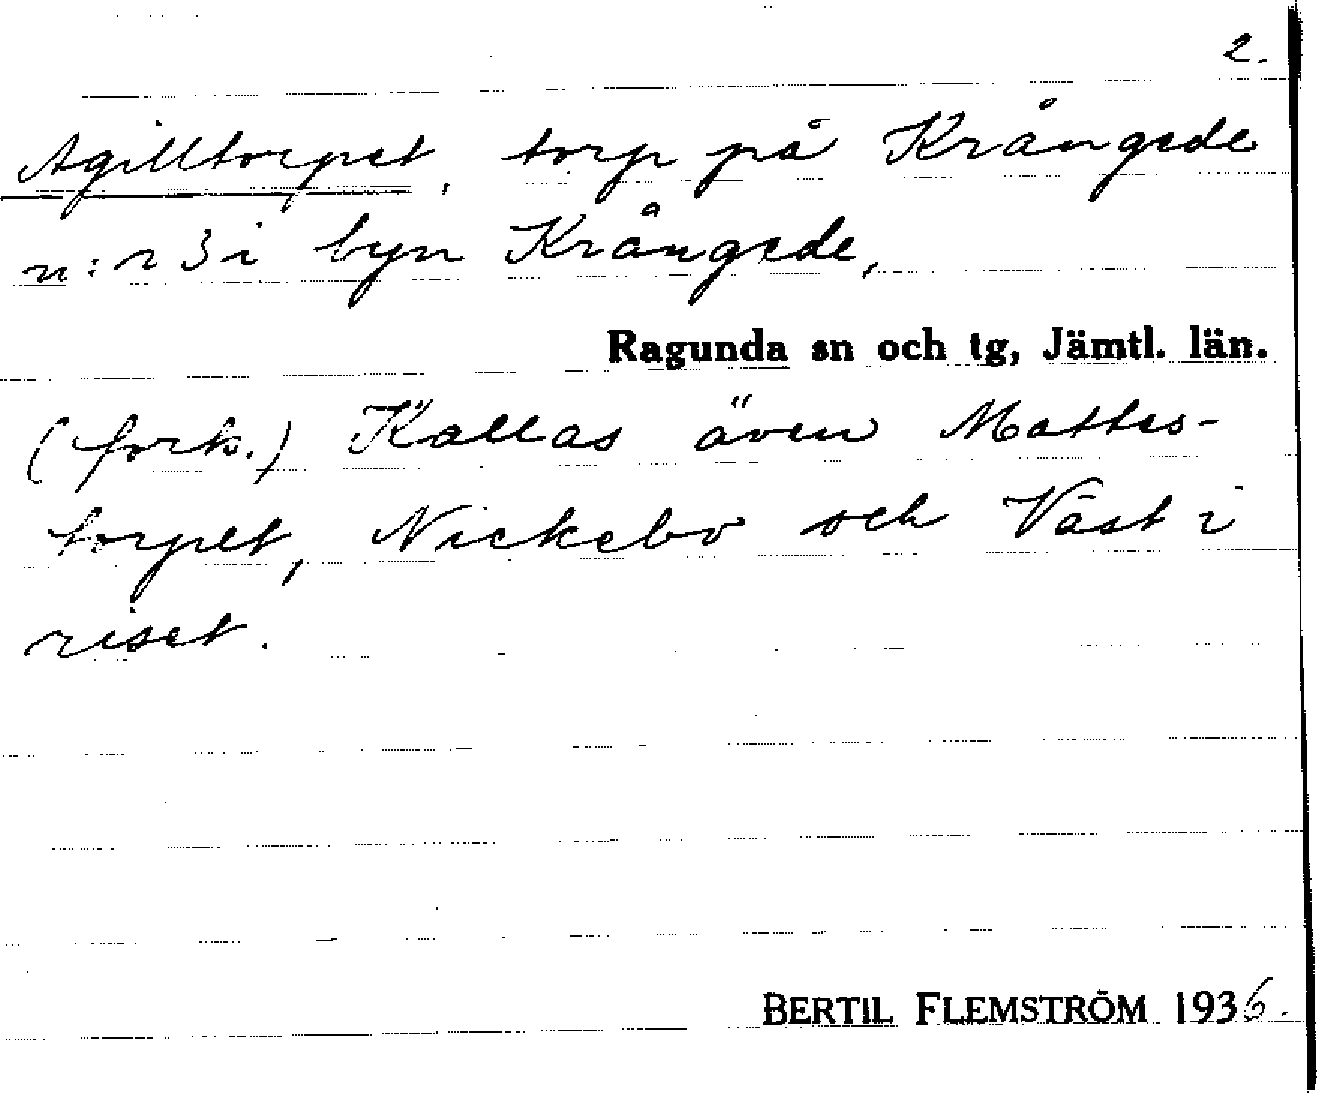 2.
Agilltorpet, torp på Krångede
n:r 3 i byn Krångede,
Ragunda sn och tg, Jämtl. län.
(fork.) Kallas även Mattes-
torpet, Nickebo och Väst i
riset.
BERTIL FLEMSTRÖM 1936.